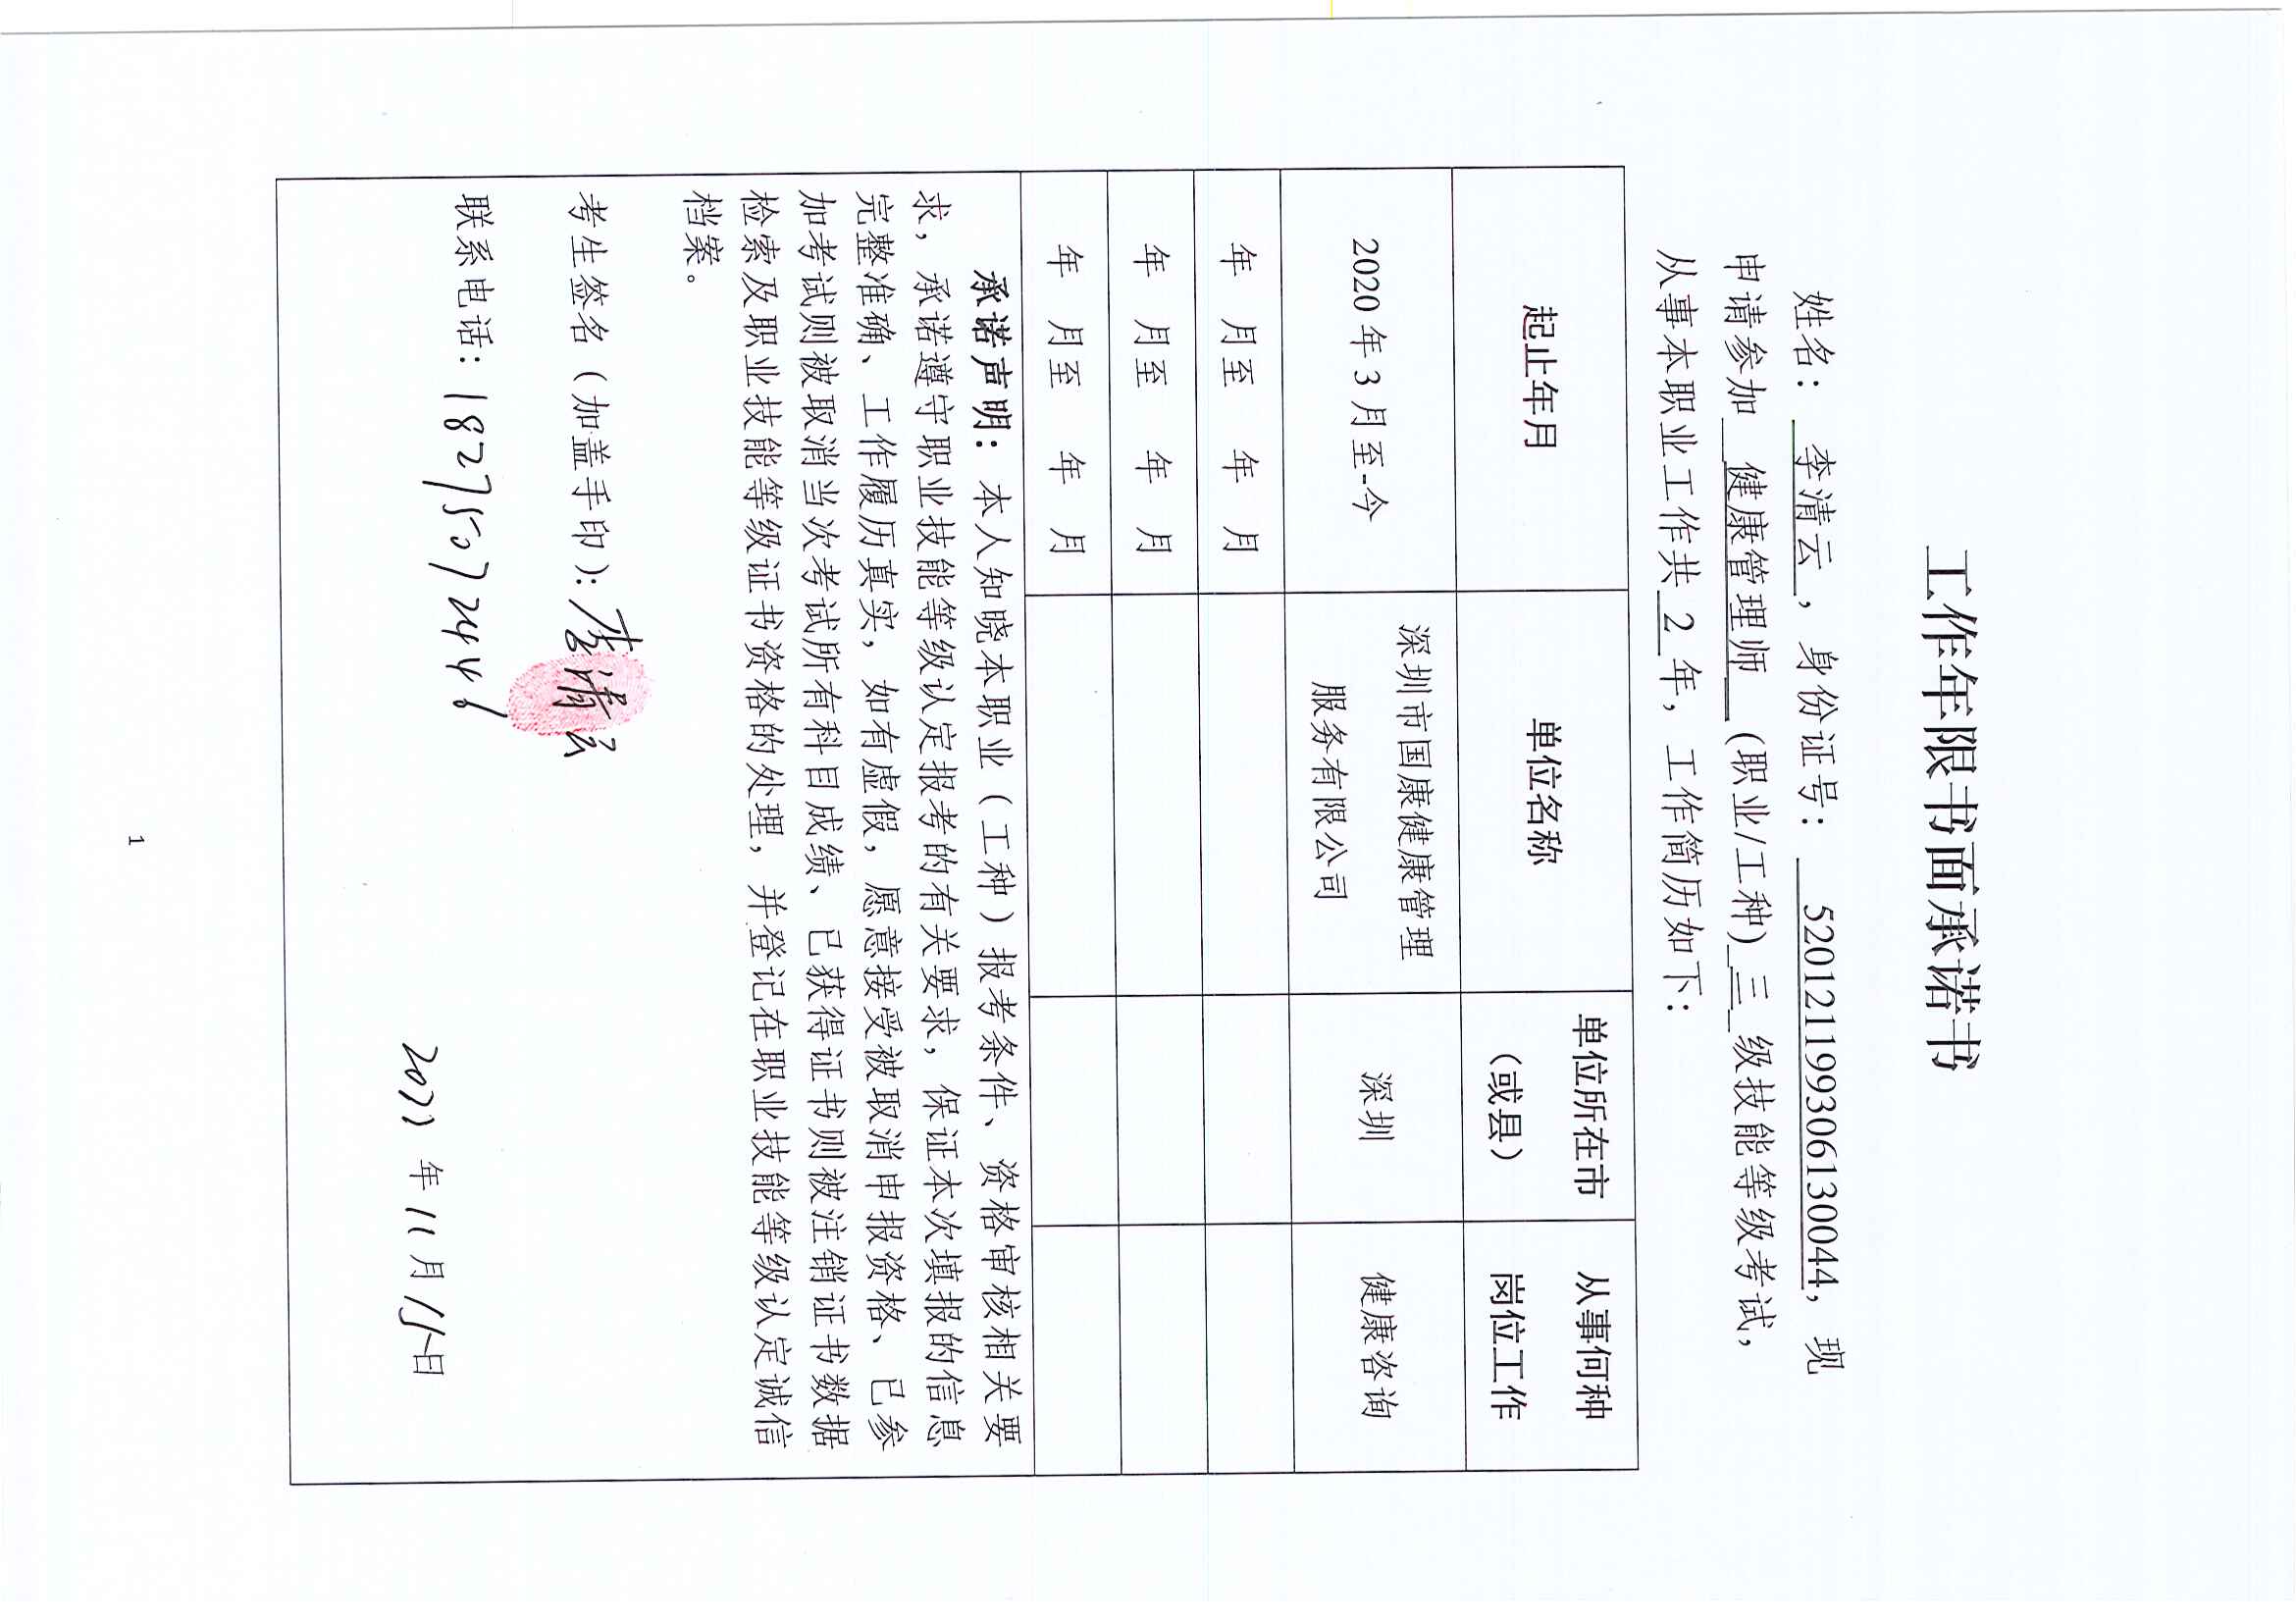 工作年限书面承诺书
姓名： 李清云 ， 身份证号： 520121199306130044， 现
申请参加 健康管理师 (职业/工种) 三 级技能等级考试，
从事本职业工作共 2 年，工作简历如下：
起止年月 单位名称 单位所在市（或县） 从事何种岗位工作
2020 年 3 月至-今 深圳市国康健康管理服务有限公司 深圳 健康咨询
年 月至 年 月
年 月至 年 月
年 月至 年 月
承诺声明：本人知晓本职业（工种）报考条件、资格审核相关要
求，承诺遵守职业技能等级认定报考的有关要求，保证本次填报的信息
完整准确、工作履历真实，如有虚假，愿意接受被取消申报资格、已参
加考试则被取消当次考试所有科目成绩、已获得证书则被注销证书数据
检索及职业技能等级证书资格的处理，并登记在职业技能等级认定诚信
档案。
考生签名（加盖手印）：李清云
联系电话：18275072446
2022 年 11 月 15 日
1